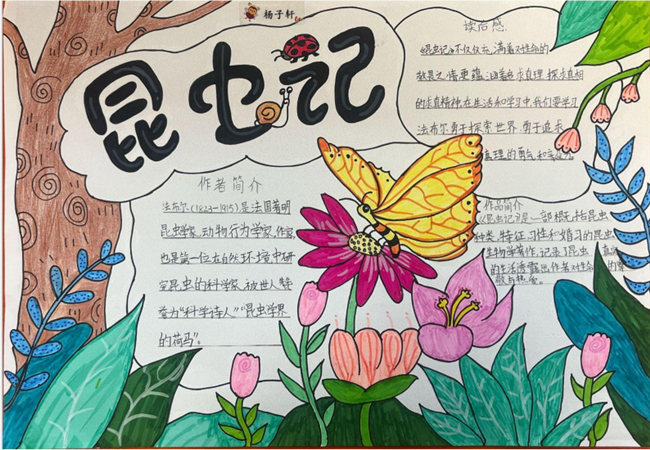 杨子轩
昆虫记
读后感
《昆虫记》不仅仅充满着对生命的
敬畏之情,更蕴涵着追求真理、探求真相
的求真精神,在生活和学习中,我们要学习
法布尔勇于探索世界,勇于追求
真理的勇气和
作者简介
法布尔(1823-1915)是法国著明
昆虫学家、动物行为学家、作家,
也是第一位在自然环境中研
究昆虫的科学家,被世人赞
誉为“科学诗人”“昆虫学界
的荷马”。
作品简介
《昆虫记》是一部概括昆虫
种类、特征、习性和婚习的昆虫
生物学著作,记录了昆虫
的生活,透露出作者对生命的
敬与热爱。